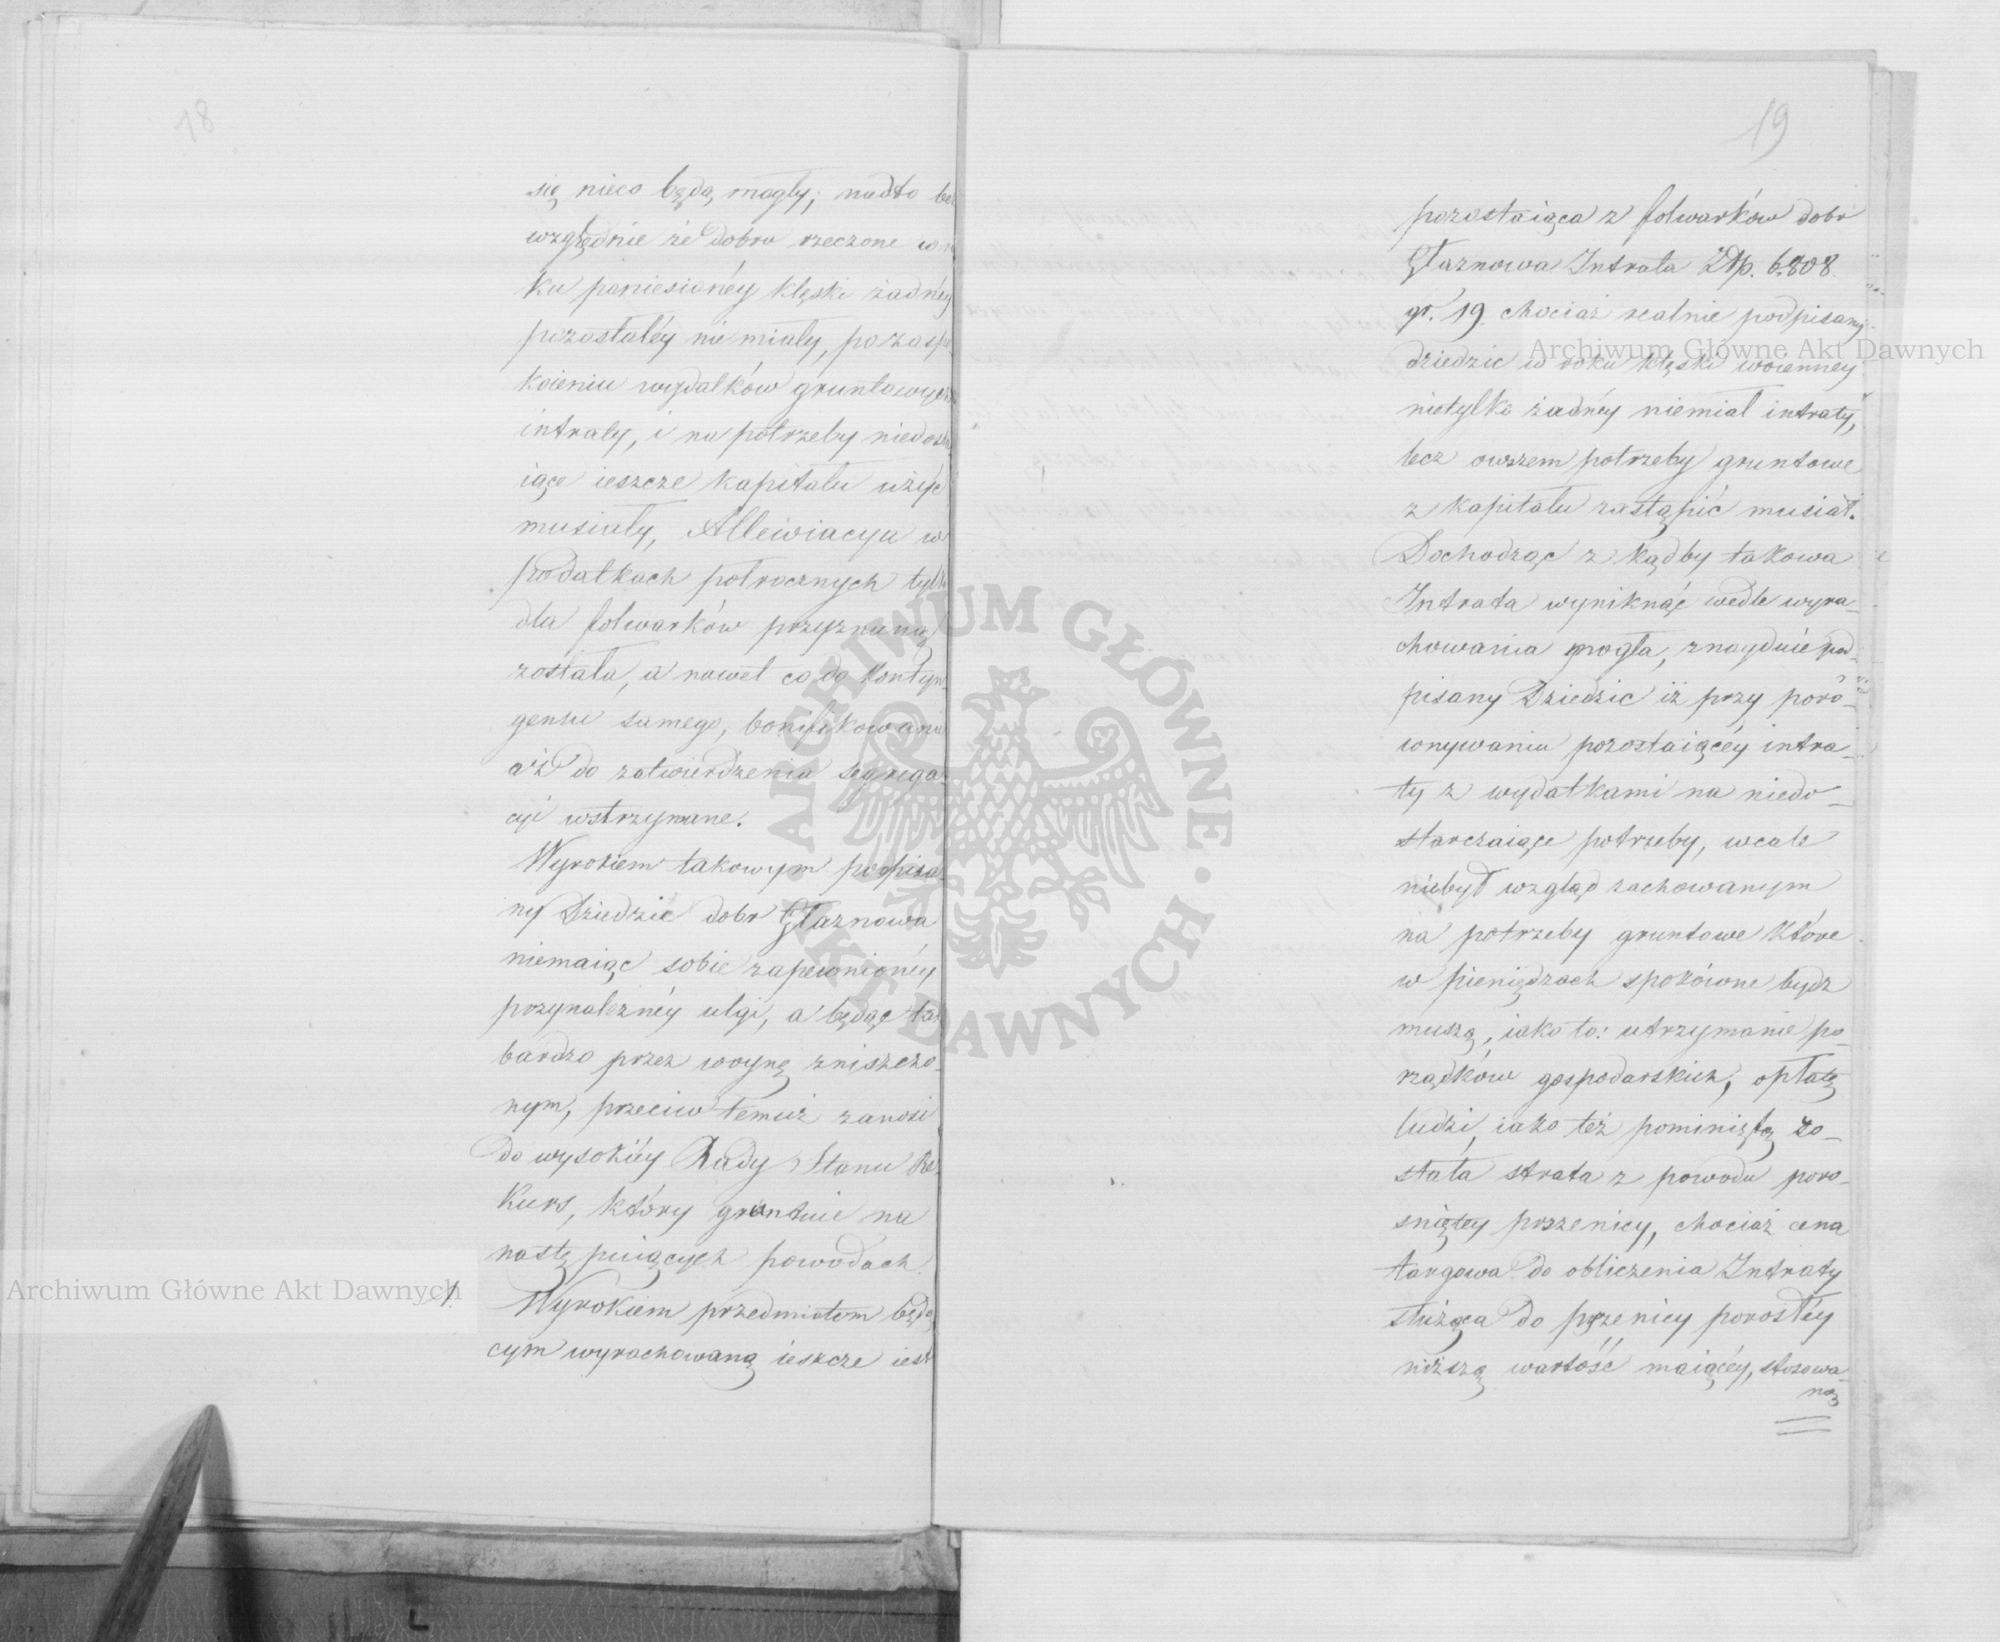 18
się nieco będą mogły; nadto bez
względnie że dobra rzeczone w ro
ku poniesionéy klęski żadnéy
pozostałéy nie miały, po zaspo
koieniu wydatków gruntowych
intraty, i na potrzeby niedosta
iące ieszcze kapitału użyć
musiały, Allewiacya w
podatkach półrocznych tylko
dla folwarków przyznaną
została, a nawet co do kontyn
gensu samego, bonifikowanie
aż do zatwierdzenia segrega
cyi wstrzymane.
Wyrokiem takowym podpisa
ny Dziedzic dobr Głaznowa
niemaiąc sobie zapewnionéy
przynależnéy ulgi, a będąc tak
bardzo przez woynę zniszczo
nym, przeciw temuż zanosi
do wysokiéy Rady Stanu Re
kurs, który gruntuie na
następuiących powodach.
1. Wyrokiem przedmiotem będą
cym wyrachowaną ieszcze iest
19
pozostaiąca z folwarków dobr
Głaznowa Intrata Złp. 6.808
gr. 19. chociaż realnie podpisany
dziedzic w roku klęski woienney
nietylko żadnéy niemiał intraty,
lecz owszem potrzeby gruntowe
z kapitału zastąpić musiał.
Dochodząc z kądby takowa
Intrata wyniknąć wedle wyra-
chowania mogła, znayduie pod-
pisany Dziedzic iż przy poró-
wnywaniu pozostaiącéy intra-
ty z wydatkami na niedo-
starczaiące potrzeby, wcale
niebył wzgląd zachowanym
na potrzeby gruntowe które
w pieniędzach spokóione bydź
muszą, iako to: utrzymanie po-
rządków gospodarskich, opłatę
ludzi, iako też pominiętą zo-
stała strata z powodu poro-
śniętey pszenicy, chociaż cena
targowa do obliczenia Intraty
służąca do pszenicy porosłéy
niższą wartość maiącéy, stosowa-
ną
Archiwum Główne Akt Dawnych
Archiwum Główne Akt Dawnych
ARCHIWUM GŁÓWNE AKT DAWNYCH